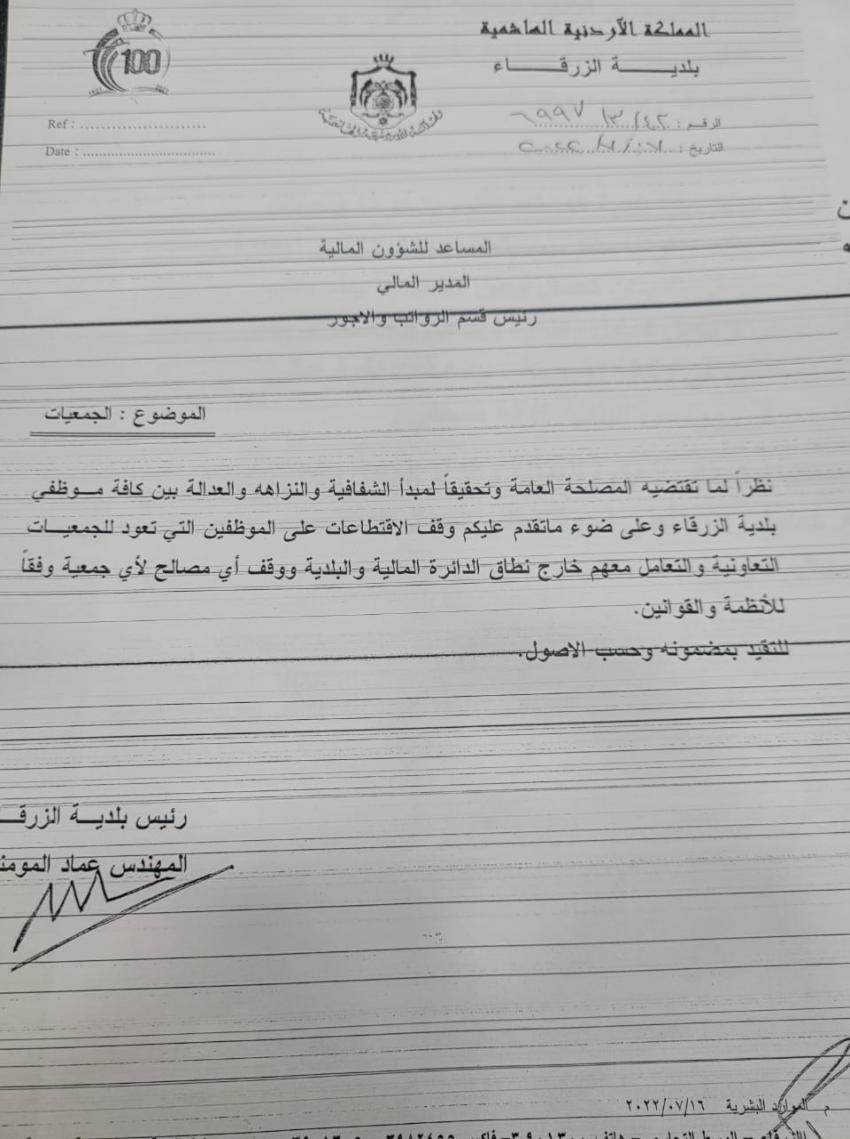 المملكة الأردنية الهاشمية
بلديـــة الزرقـــاء
100
الرقم :
التاريخ :
Ref : ........................
Date : ................................
المساعد للشؤون المالية
المدير المالي
رئيس قسم الرواتب والاجور
الموضوع : الجمعيات
نظراً لما تقتضيه المصلحة العامة وتحقيقاً لمبدأ الشفافية والنزاهه والعدالة بين كافة موظفي
بلدية الزرقاء وعلى ضوء ماتقدم عليكم وقف الاقتطاعات على الموظفين التي تعود للجمعيات
التعاونية والتعامل معهم خارج نطاق الدائرة المالية والبلدية ووقف أي مصالح لأي جمعية وفقاً
للأنظمة والقوانين.
للتقيد بمضمونه وحسب الاصول.
رئيس بلدية الزرق
المهندس عماد المومن
م الموارد البشرية ٢٠٢٢/٠٧/١٦